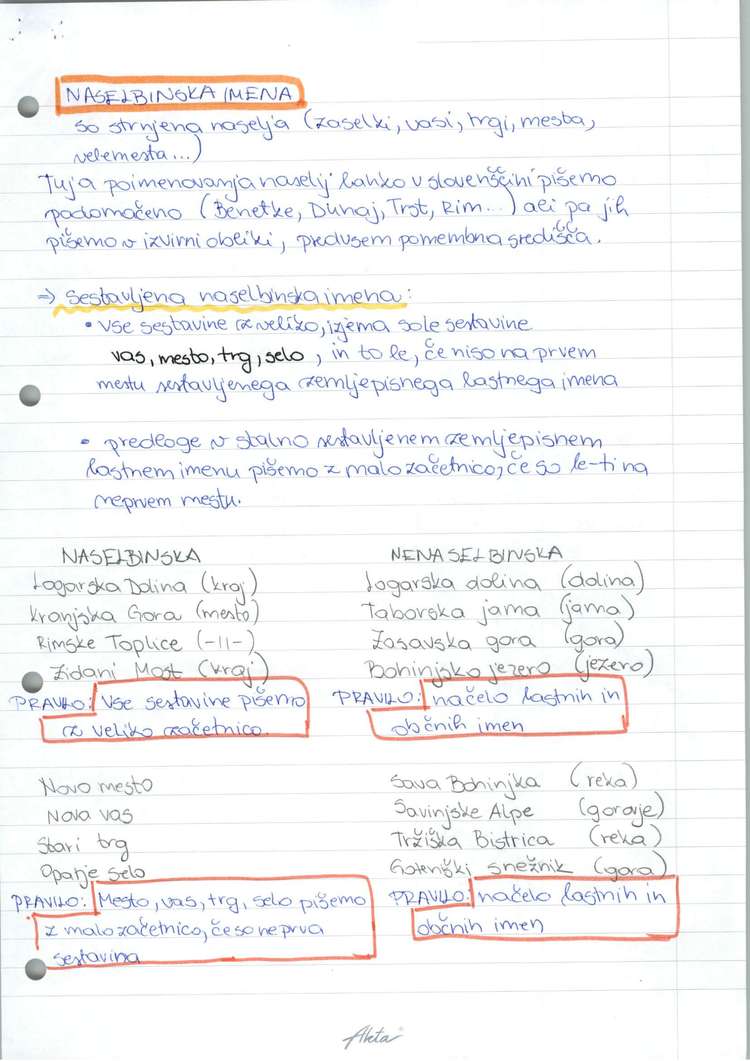 NASELBINSKA IMENA
so strnjena naselja (zaselki, vasi, trgi, mesta,
velemesta...)
Tuja poimenovanja naselij lahko v slovenščini pišemo
podomačeno (Benetke, Dunaj, Trst, Rim...) ali pa jih
pišemo v izvirni obliki, predvsem pomembna središča.
⇒ Sestavljena naselbinska imena:
• vse sestavine z veliko, izjema so le sestavine
vas, mesto, trg, selo, in to le, če niso na prvem
mestu sestavljenega zemljepisnega lastnega imena
• predloge v stalno sestavljenem zemljepisnem
lastnem imenu pišemo z malo začetnico, če so le-ti na
neprvem mestu.
NASELBINSKA
Logarska Dolina (kraj)
Kranjska Gora (mesto)
Rimske Toplice (-||-)
Zidani Most (kraj)
PRAVILO: Vse sestavine pišemo
z veliko začetnico.
NENASELBINSKA
Logarska dolina (dolina)
Taborska jama (jama)
Zasavska gora (gora)
Bohinjsko jezero (jezero)
PRAVILO: načelo lastnih in
občnih imen
Novo mesto
Nova vas
Stari trg
Opatje selo
PRAVILO: Mesto, vas, trg, selo pišemo
z malo začetnico, če so neprva
sestavina
Sava Bohinjka (reka)
Savinjske Alpe (gorovje)
Tržiška Bistrica (reka)
Goteniški snežnik (gora)
PRAVILO: načelo lastnih in
občnih imen
Akta